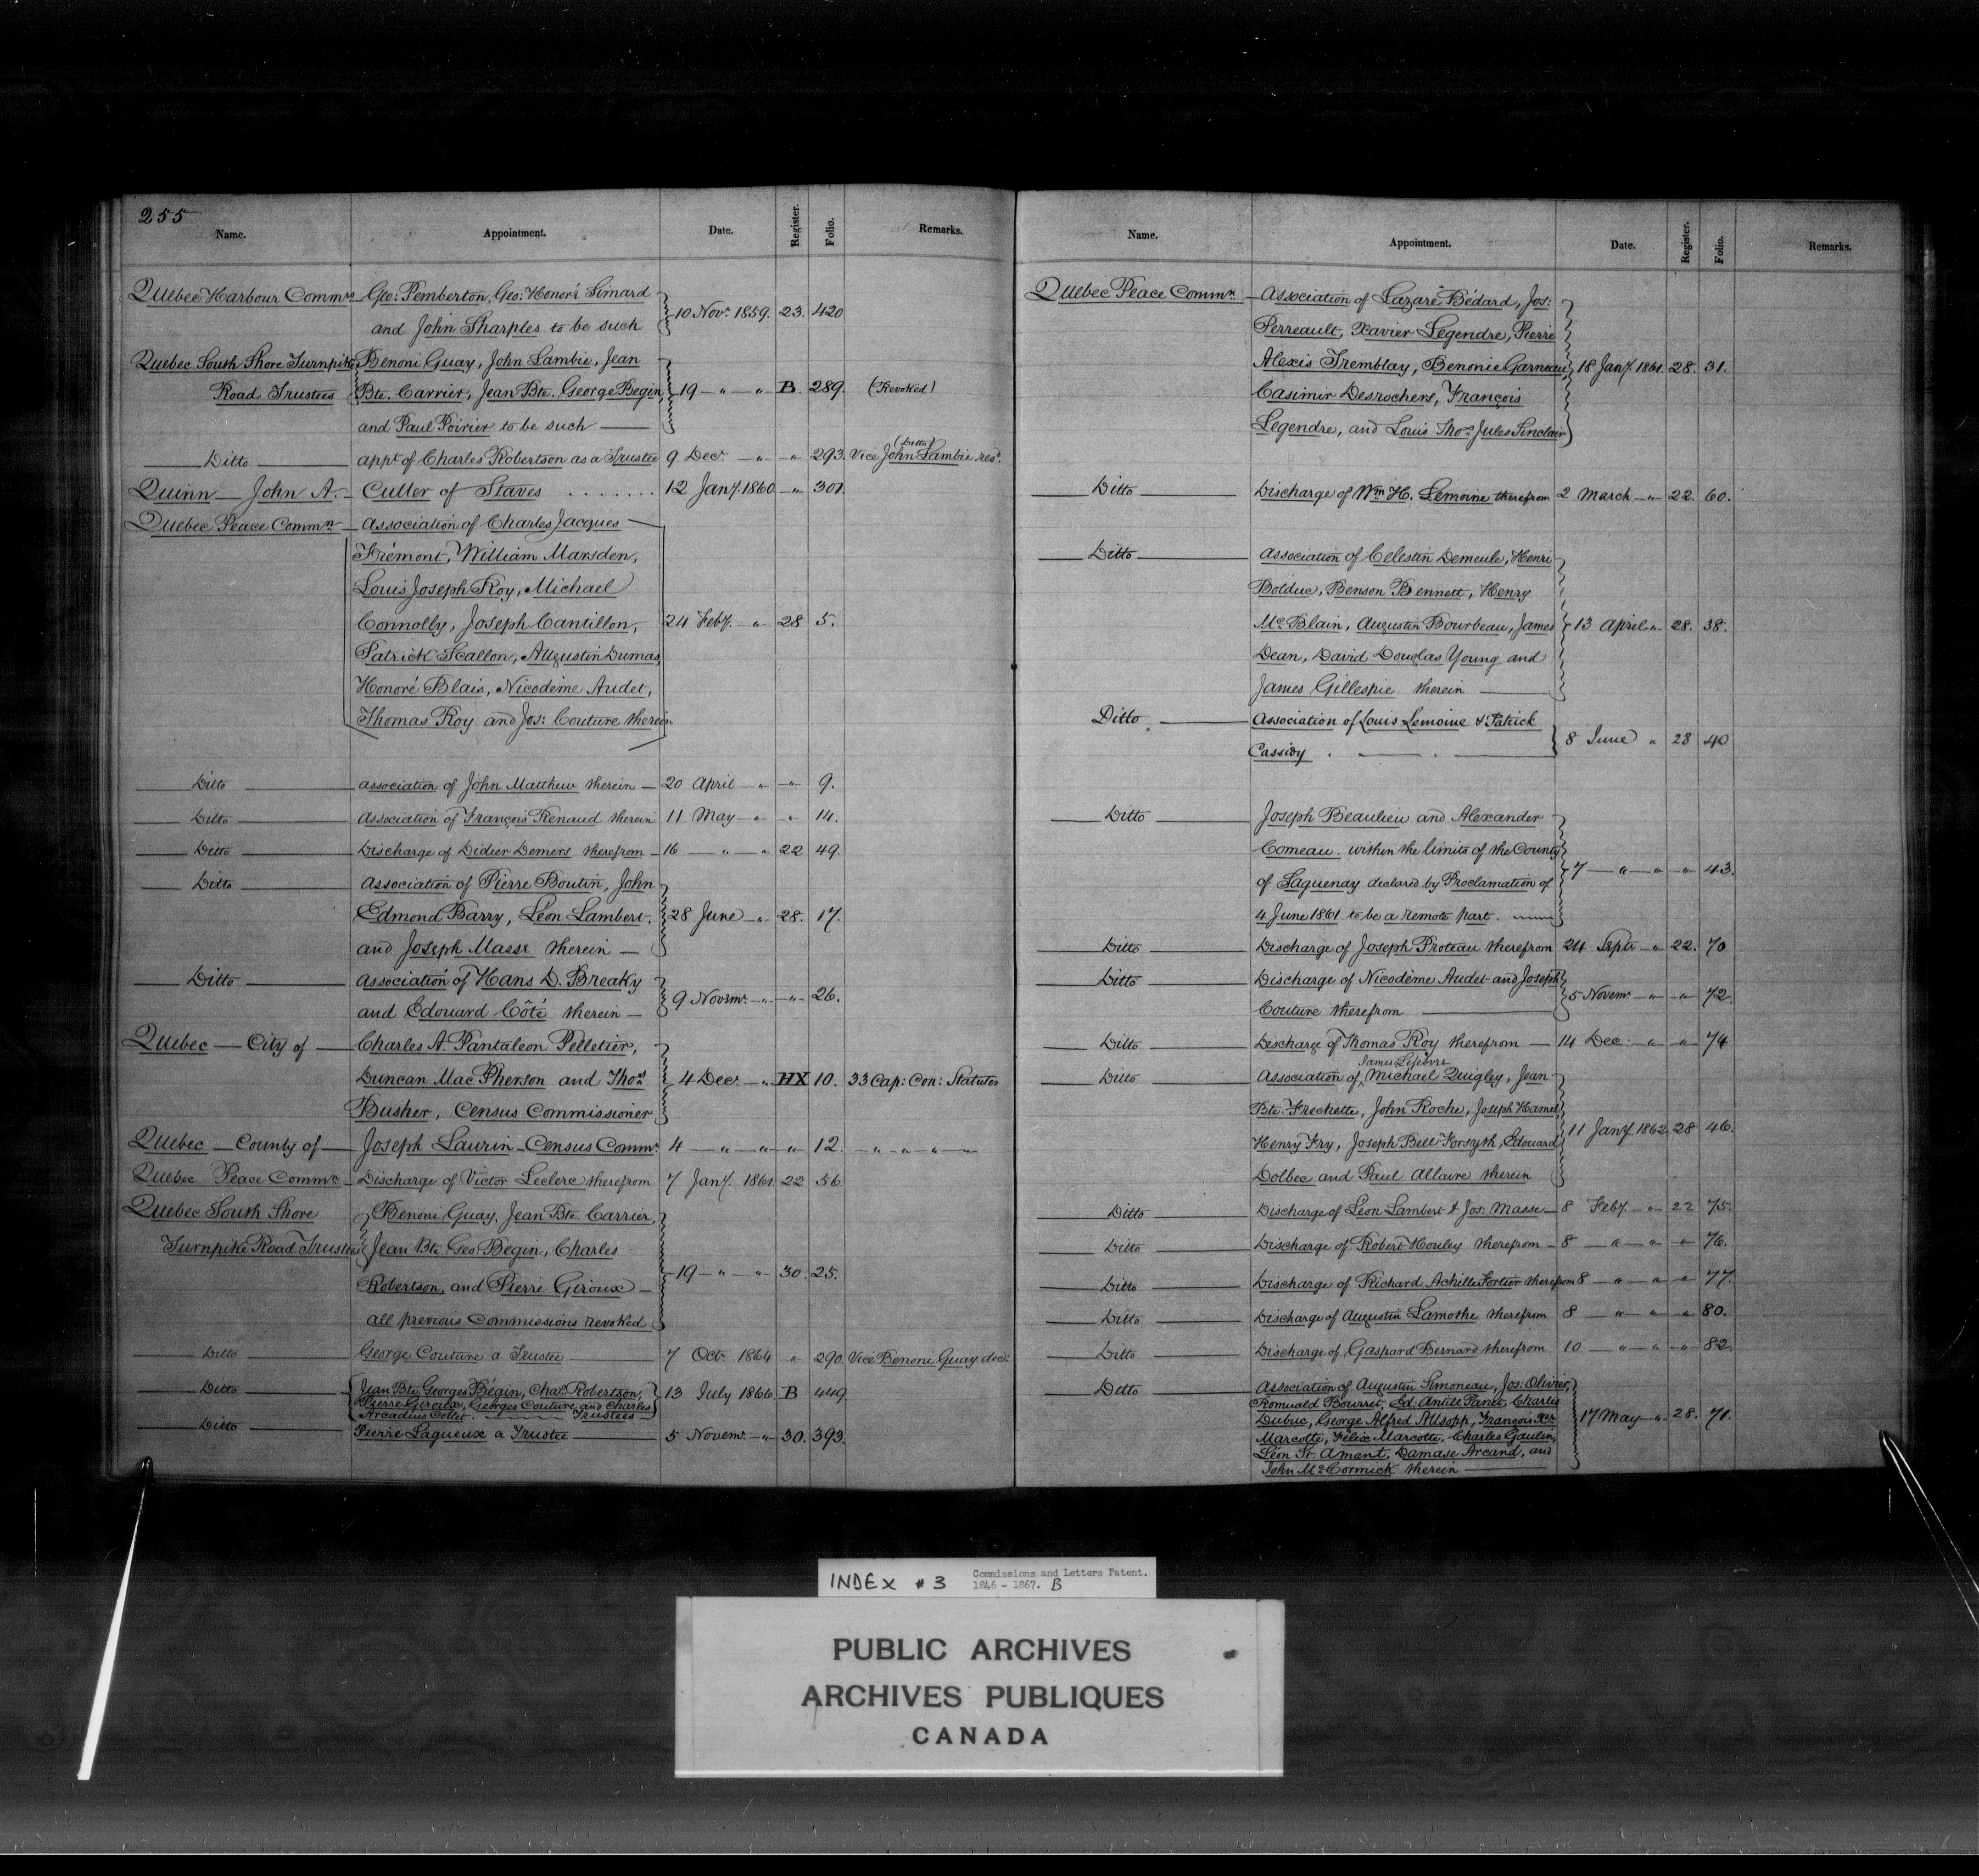 255
Name. Appointment. Date. Register. Folio. Remarks.
Quebec Harbour Commrs Geo: Pemberton, Geo: Honoré Simard
and John Sharples to be such 10 Novr. 1859. 23. 420
Quebec South Shore Turnpike Benoni Guay, John Lambie, Jean
Road Trustees Bte. Carrier, Jean Bte. George Begin 19 " " B. 289. (Revoked)
and Paul Poirier to be such
(Ditto)
Ditto appt. of Charles Robertson as a Trustee 9 Decr. " " 293. Vice John Lambie resd.
Quinn John A. Culler of Staves . . . . . . . . 12 Jany. 1860 " 301.
Quebec Peace Commn Association of Charles Jacques
Frémont, William Marsden,
Louis Joseph Roy, Michael
Connolly, Joseph Cantillon, 24 Feby. " 28 5.
Patrick Scallon, Augustin Dumas,
Honoré Blais, Nicodème Audet,
Thomas Roy and Jos: Couture therein
Ditto association of John Matthew therein 20 April " " 9.
Ditto Association of François Renaud therein 11 May " " 14.
Ditto Discharge of Didier Demers therefrom 16 " " 22 49.
Ditto Association of Pierre Boutin, John
Edmond Barry, Léon Lambert, 28 June " 28. 17.
and Joseph Masse therein
Ditto Association of Hans D. Breaky
and Edouard Côté therein 9 Novemr. " " 26.
Quebec City of Charles A. Pantaleon Pelletier,
Duncan MacPherson and Thos. 4 Decr. " HX 10. 33 Cap: Con: Statutes
Busher, Census Commissioner
Quebec County of Joseph Laurin Census Commr. 4 " " " 12. " " " "
Quebec Peace Commn. Discharge of Victor Leclerc therefrom 7 Jany. 1861. 22 56.
Quebec South Shore Benoni Guay, Jean Bte. Carrier,
Turnpike Road Trustees Jean Bte. Geo: Begin, Charles
Robertson, and Pierre Giroux 19 " " 30. 25.
all previous commissions revoked
Ditto George Couture a Trustee 7 Octr. 1864 " 290. Vice Benoni Guay dec:
Ditto Jean Bte. Georges Bégin, Chas. Robertson, 13 July 1866. B 449.
Pierre Giroux, Georges Couture and Charles
Arcadius Collet. Trustees
Ditto Pierre Lagueux a Trustee 5 Novemr. " 30. 393.
Name. Appointment. Date. Register. Folio. Remarks.
Quebec Peace Commn. Association of Lazare Bédard, Jos:
Perreault, Xavier Legendre, Pierre
Alexis Tremblay, Benonie Garneau, 18 Jany. 1861. 28. 31.
Casimir Desrochers, François
Legendre, and Louis Thos. Jules Sinclair
Ditto Discharge of Wm H. Lemoine therefrom 2 March " 22. 60.
Ditto Association of Celestin Demeule, Henri
Bolduc, Benson Bennett, Henry
McBlain, Augustin Bourbeau, James 13 April " 28. 38.
Dean, David Douglas Young and
James Gillespie therein
Ditto Association of Louis Lemoine & Patrick
Cassidy . . 8 June " 28 40
Ditto Joseph Beaulieu and Alexander
Comeau. within the limits of the County
of Saguenay declared by Proclamation of 7 " " " 43.
4 June 1861 to be a remote part.
Ditto Discharge of Joseph Proteau therefrom 24 Septr " 22. 70
Ditto Discharge of Nicodème Audet and Joseph
Couture therefrom 5 Novemr. " " 72.
Ditto Discharge of Thomas Roy therefrom 14 Dec: " " 74
James Lefebvre
Ditto Association of Michael Quigley, Jean
Bte. Frechette, John Roche, Joseph Hamel,
Henry Fry, Joseph Bell Forsyth, Edouard 11 Jany. 1862. 28 46.
Dolbec and Paul Allaire therein
Ditto Discharge of Leon Lambert & Jos: Masse 8 Feby. " 22 75.
Ditto Discharge of Robert Houley therefrom 8 " " " 76.
Ditto Discharge of Richard Achille Fortier therefrom 8 " " " 77
Ditto Discharge of Augustin Lamothe therefrom 8 " " " 80.
Ditto Discharge of Gaspard Bernard therefrom 10 " " " 82.
Ditto Association of Augustin Simoneau, Jos: Olivier,
Romuald Bourret, Ed: Antill Panet, Charles
Dubuc, George Alfred Allsopp, François Xer 17 May " 28. 71.
Marcotte, Félix Marcotte, Charles Gaulin,
Léon St. Amant, Damase Arcand, and
John McCormick therein
INDEX # 3 Commissions and Letters Patent.
1846 - 1867. B
PUBLIC ARCHIVES
ARCHIVES PUBLIQUES
CANADA